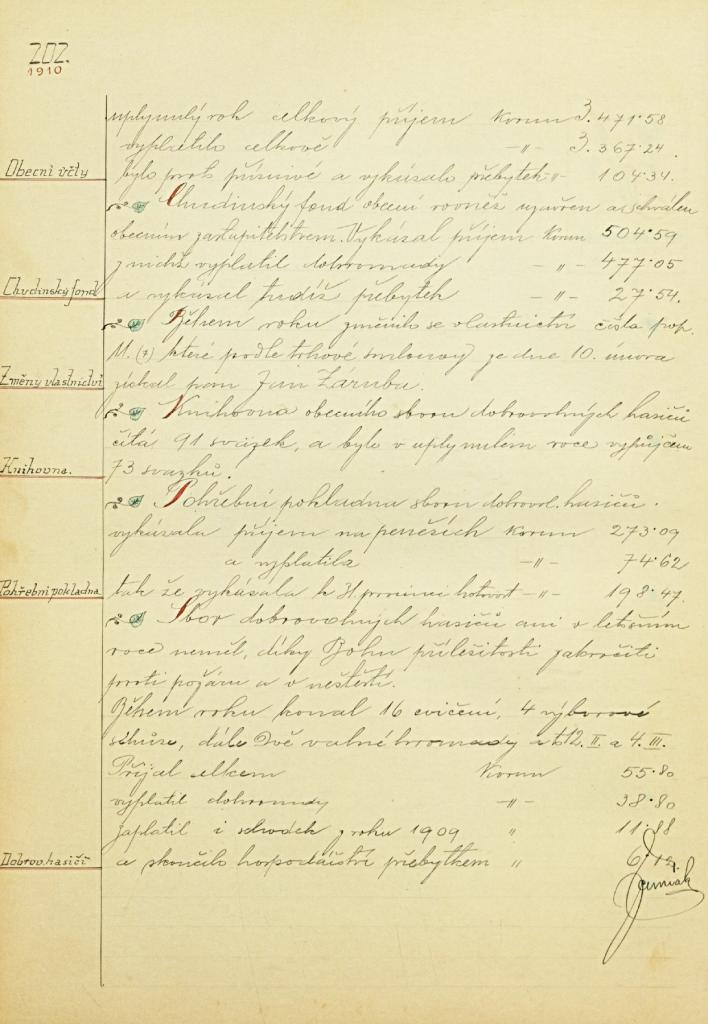 202.
1910
uplynulý rok celkový příjem Korun 3.471·58
vyplatilo celkově -"- 3.367·24.
Obecní účty
bylo proto příznivé a vykázalo přebytek -"- 104·34.
Chudinský fond obecní rovněž uzavřen a schválen
obecním zastupitelstvem. Vykázal příjem Korun 504·59
z nichž vyplatil dohromady -"- 477·05
Chudinský fond
a vykázal tudíž přebytek -"- 27·54.
Během roku změnilo se vlastnictví čísla pop.
11. (7) které podle trhové smlouvy ze dne 10. února
Změny vlastnictví
získal pan Jan Záruba.
Knihovna obecního sboru dobrovolných hasičů
čítá 91 svazek, a bylo v uplynulém roce vypůjčeno
Knihovna.
73 svazků.
Pohřební pokladna sboru dobrovol. hasičů.
vykázala příjem na penězích Korun 273·09
a vyplatila -"- 74·62
Pohřební pokladna
tak že vykázala k 31. prosinci hotovost -"- 198·47.
Sbor dobrovolných hasičů ani v letošním
roce neměl, díky Bohu příležitosti zakročiti
proti požáru a v neštěstí.
Během roku konal 16 cvičení, 4 výborové
schůze, dále dvě valné hromady a t. 12. II. a 4. III.
Přijal celkem Korun 55·80
vyplatil dohromady -"- 38·80
zaplatil i schodek z roku 1909 " 11·88
Dobrov. hasiči
a skončilo hospodářství přebytkem "